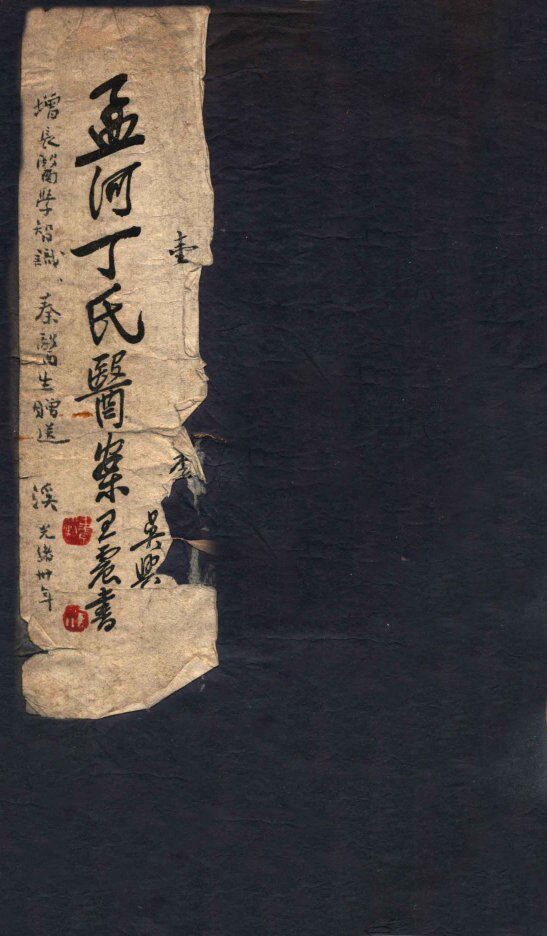 壹
吳興
孟河丁氏醫案 王震書
增長醫學智識。秦醫生贈送 溪 光緒卅年